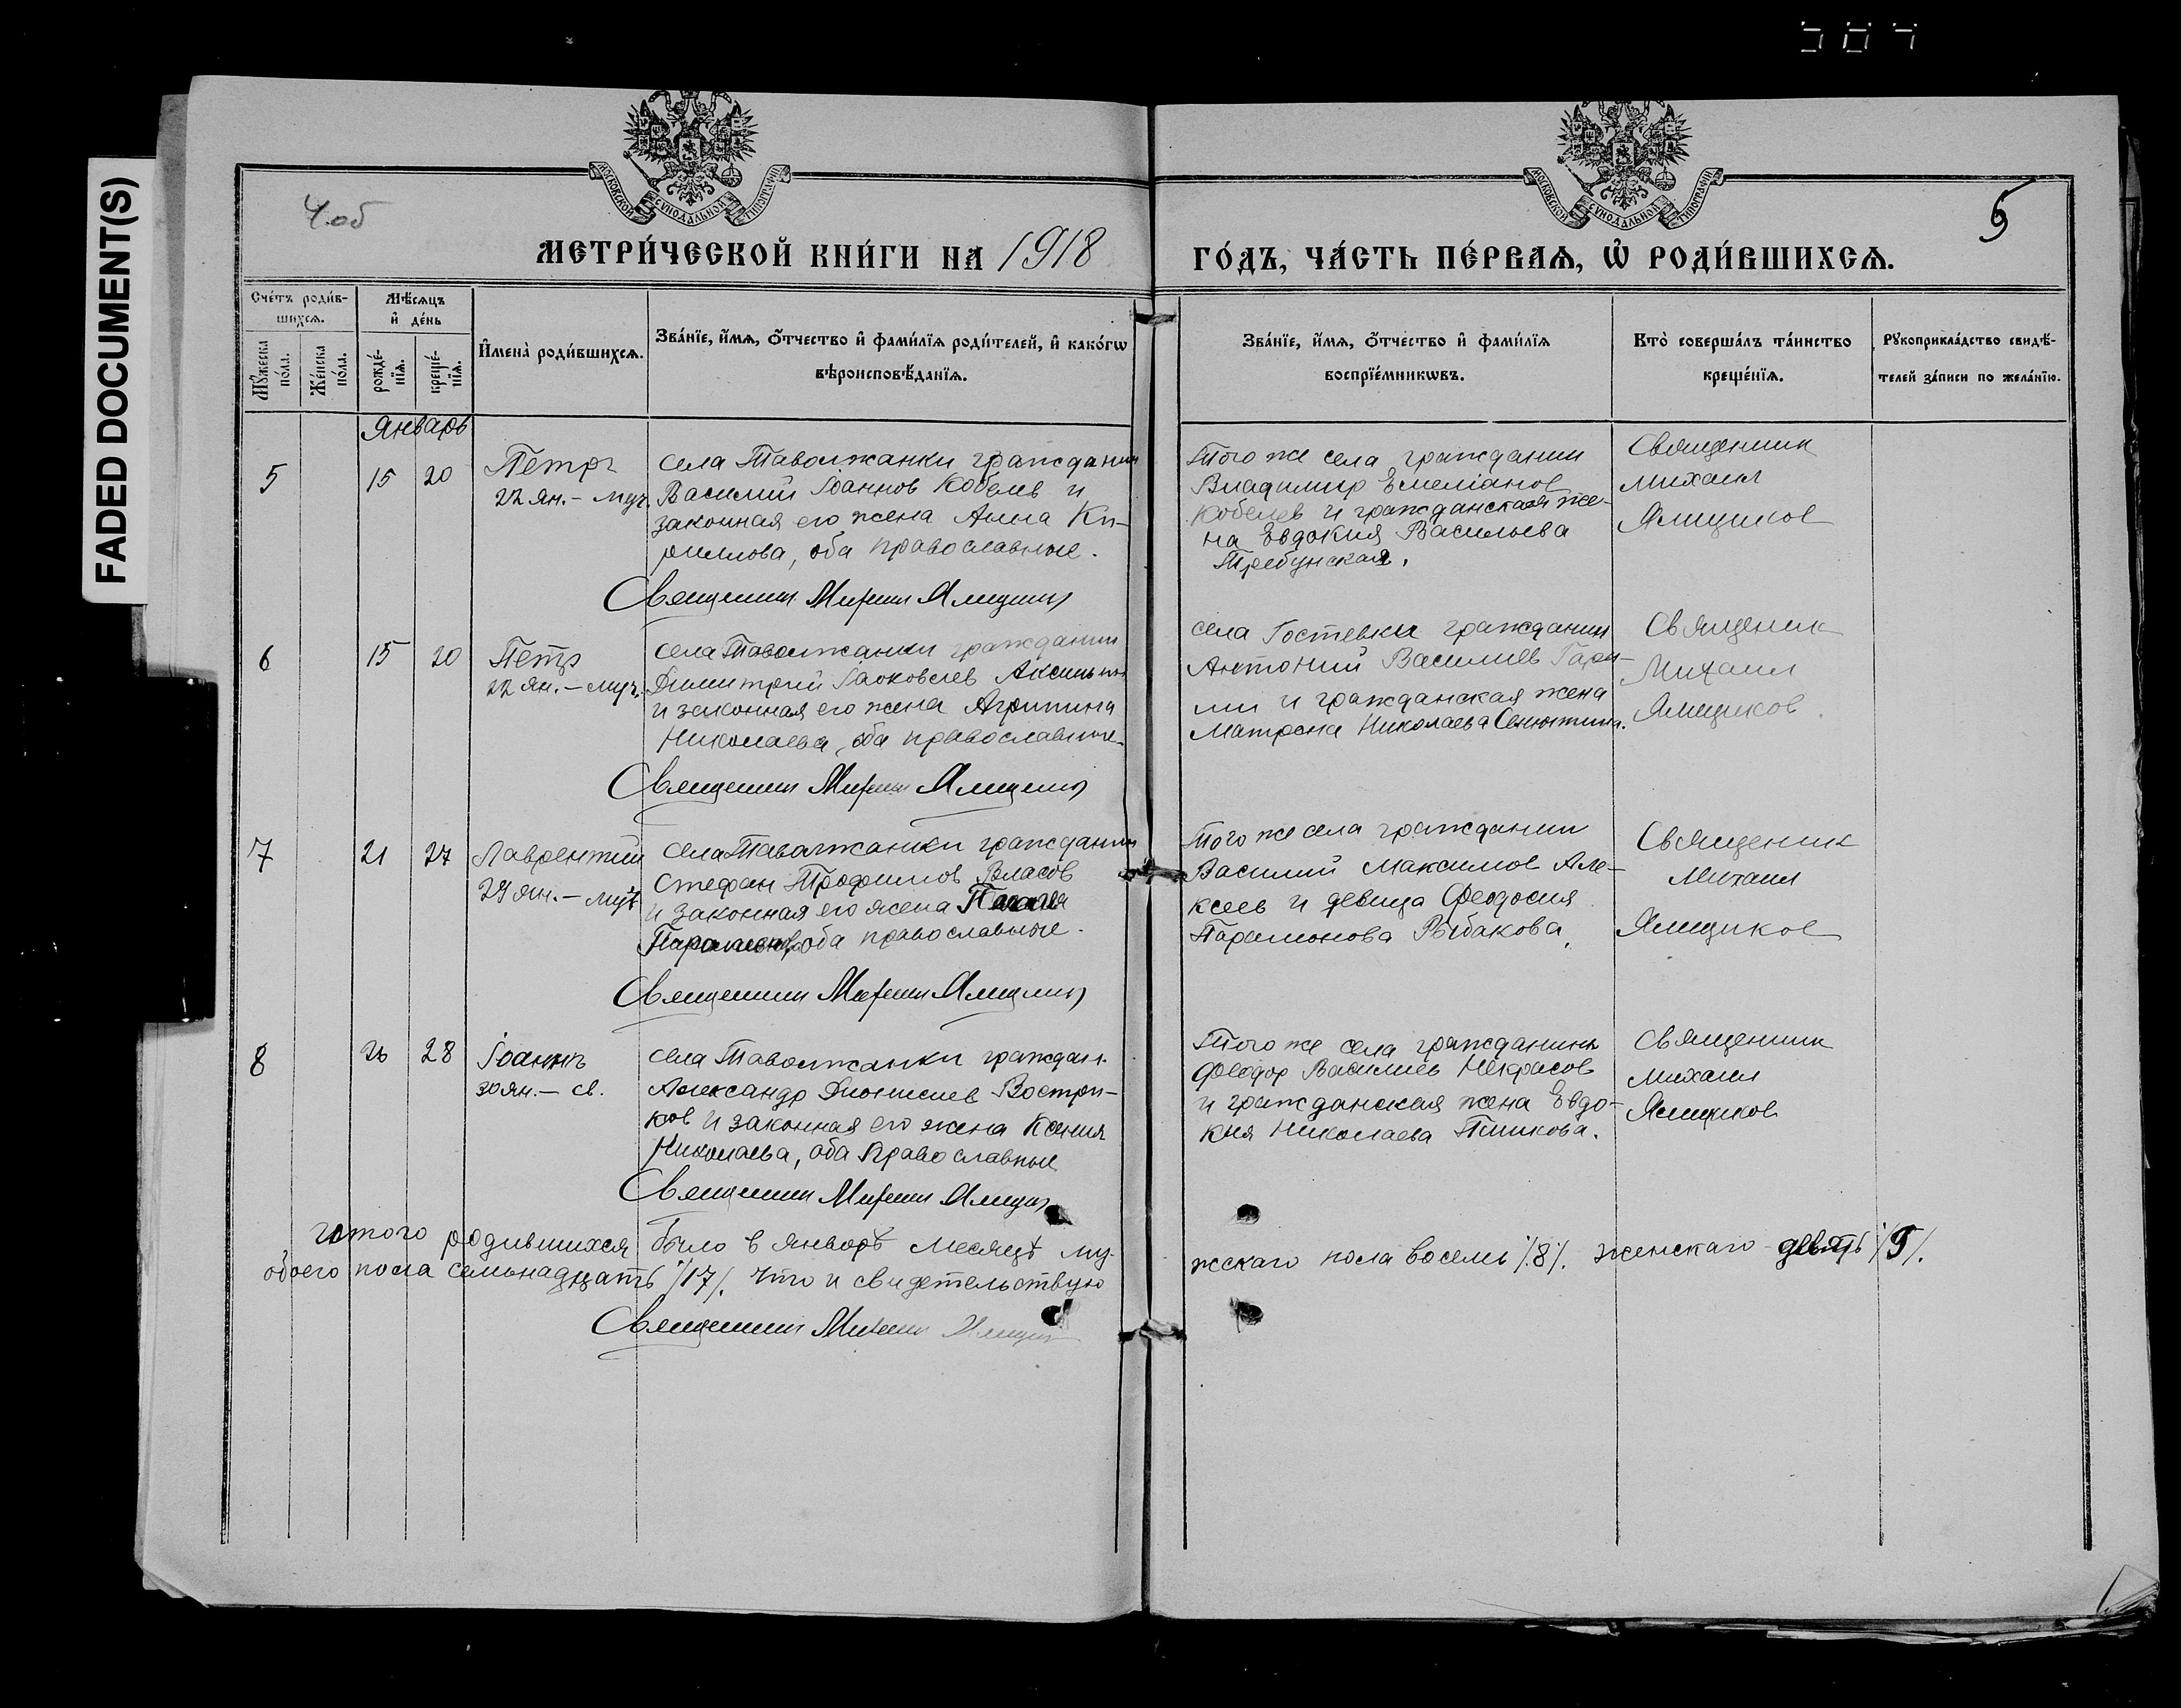 FADED DOCUMENT(S)
4 об
5
МОСКОВСКОЙ СѴНОДАЛЬНОЙ ТИПОГРАФІИ
МОСКОВСКОЙ СѴНОДАЛЬНОЙ ТИПОГРАФІИ
МЕТРИ́ЧЕСКОЙ КНИ́ГИ НА 1918
ГО́ДЪ, ЧА́СТЬ ПЕ́РВАѦ, Ѽ РОДИ́ВШИХСѦ.
Сче́тъ роди́в-
шихсѧ.
Мꙋ́жеска по́ла.
Же́нска по́ла.
Мѣ́сѧцъ
и҆ де́нь
рожде́-
нїѧ.
креще́-
нїѧ.
И҆мена̀ роди́вшихсѧ.
Зва́нїе, и҆́мѧ, ѻ҆́тчество и҆ фами́лїѧ роди́телей, и҆ како́гѡ
вѣроисповѣ́данїѧ.
Зва́нїе, и҆́мѧ, ѻ҆́тчество и҆ фами́лїѧ
воспрїе́мникѡвъ.
Кто̀ соверша́лъ та́инство
креще́нїѧ.
Рꙋкоприкла́дство свидѣ́-
телей за́писи по жела́нїю.
Январь
5 15 20
Петръ
22 ян. – муч.
села Таволжанки гражданин
Василий Іоаннов Кобелев и
законная его жена Анна Ки-
риллова, оба православные.
Священник Михаил Ямщиков
Того же села гражданин
Владимир Емелианов
Кобелев и гражданская же-
на Евдокия Васильева
Требунская.
Священник
Михаил
Ямщиков
6 15 20
Петр
22 ян. – муч.
села Таволжанки гражданин
Димитрий Іаковлев
и законная его жена Агрипина
Николаева, оба православные
Священник Михаил Ямщиков
села Гостевки гражданин
Антоний Василиев Гари-
и гражданская жена
Матрона Николаева Сенютина.
Священик
Михаил
Ямщиков.
7 21 27
Лаврентий
29 ян. – муч
села Таволжанки гражданин
Стефан Трофимов Власов
и законная его жена
оба православные.
Священник Михаил Ямщиков
Того же села гражданин
Василий Максимов Але-
ксеев и девица Феодосия
Парамонова Рыбакова,
Священик
Михаил
Ямщиков
8 26 28
Іоаннъ
30 ян. – св.
села Таволжанки граждан.
Александр Дионисиев Востри-
ков и законная его жена Ксения
Николаева, оба православные
Священник Михаил Ямщиков
Того же села гражданинъ
Феодор Василиев Некрасов
и гражданская жена Евдо-
кия Николаева Пашкова.
Священник
Михаил
Ямщиков
Итого родившихся было в Январѣ месяцѣ му-
жскаго пола восемь /8/. женскаго девять /9/.
обоего пола семьнадцать /17/. Что и свидетельствую
Священник Михаил Ямщиков